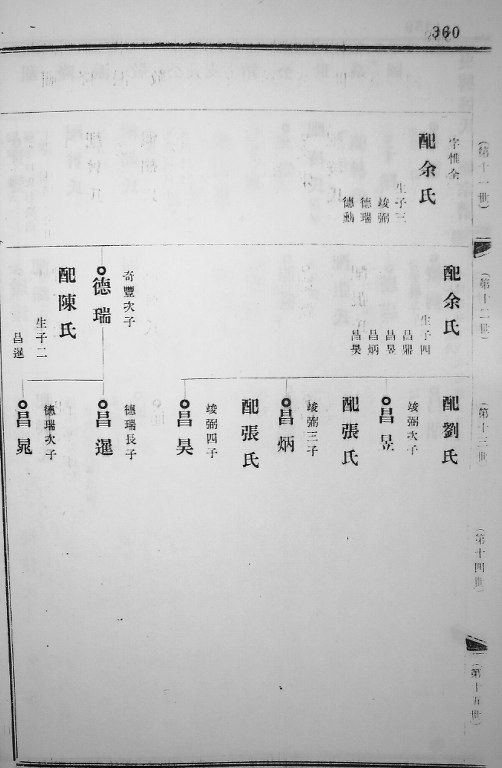 360
(第十一世)
字惟全
配余氏
生子三
竣弼
德瑞
德勳
(第十二世)
配余氏
生子四
昌鼎
昌昱
昌炳
昌昊
奇豐次子
德瑞
配陳氏
生子二
昌暹
(第十三世)
配劉氏
竣弼次子
昌昱
配張氏
竣弼三子
昌炳
配張氏
竣弼四子
昌昊
德瑞長子
昌暹
德瑞次子
昌晁
(第十四世)
(第十五世)